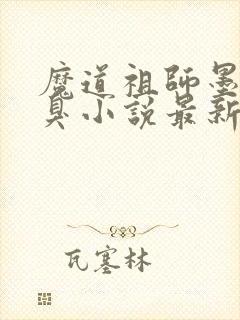 魔道祖師墨
臭小說最新
瓦塞林